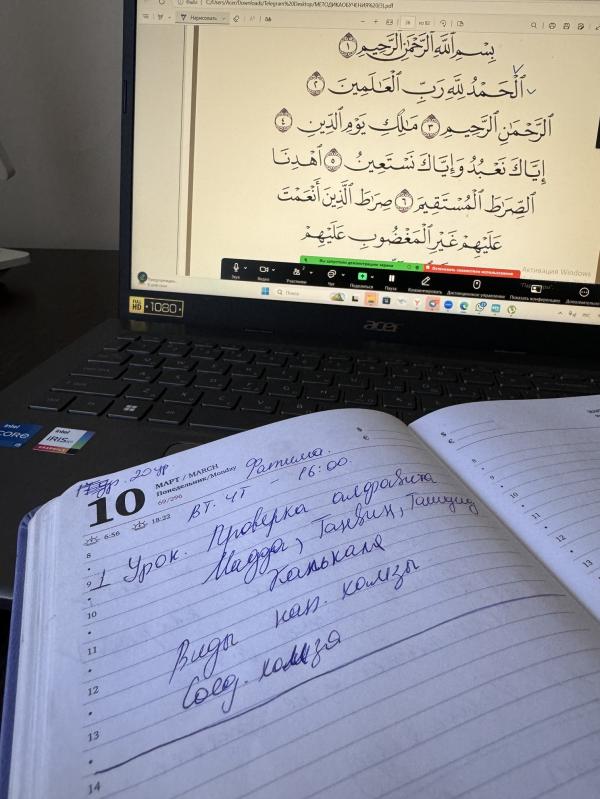 Файл C:/Users/Acer/Downloads/Telegram%20Desktop/МЕТОДИКАОБУЧЕНИЯ%20(3).pdf
Нарисовать
из 82
بِسْمِ ٱللَّهِ ٱلرَّحْمَٰنِ ٱلرَّحِيمِ ١
ٱلْحَمْدُ لِلَّهِ رَبِّ ٱلْعَٰلَمِينَ ٢
ٱلرَّحْمَٰنِ ٱلرَّحِيمِ ٣ مَٰلِكِ يَوْمِ ٱلدِّينِ ٤
إِيَّاكَ نَعْبُدُ وَإِيَّاكَ نَسْتَعِينُ ٥ ٱهْدِنَا
ٱلصِّرَٰطَ ٱلْمُسْتَقِيمَ ٦ صِرَٰطَ ٱلَّذِينَ أَنْعَمْتَ
عَلَيْهِمْ غَيْرِ ٱلْمَغْضُوبِ عَلَيْهِمْ
Активация Windows
Вы запустили демонстрацию экрана
Остановить совместное использование
Звук Видео Участники Чат Поделиться Пауза Комментировать Дистанционное управление Показать конференцию Дополнительно
Поиск
FULL HD 1080
acer
intel CORE i5
intel IRIS xe
20 ур
Фатима.
10
МАРТ / MARCH
Понедельник/Monday
69/296
6:56 18:22
ВТ. ЧТ - 16:00.
$
€
$
€
8
9
10
11
12
13
14
8
9
10
11
12
13
1 Урок. Проверка алфавита
Мадда, Танвин, Ташдид
Калькаля
Виды нап. хамзы
Соед. хамза